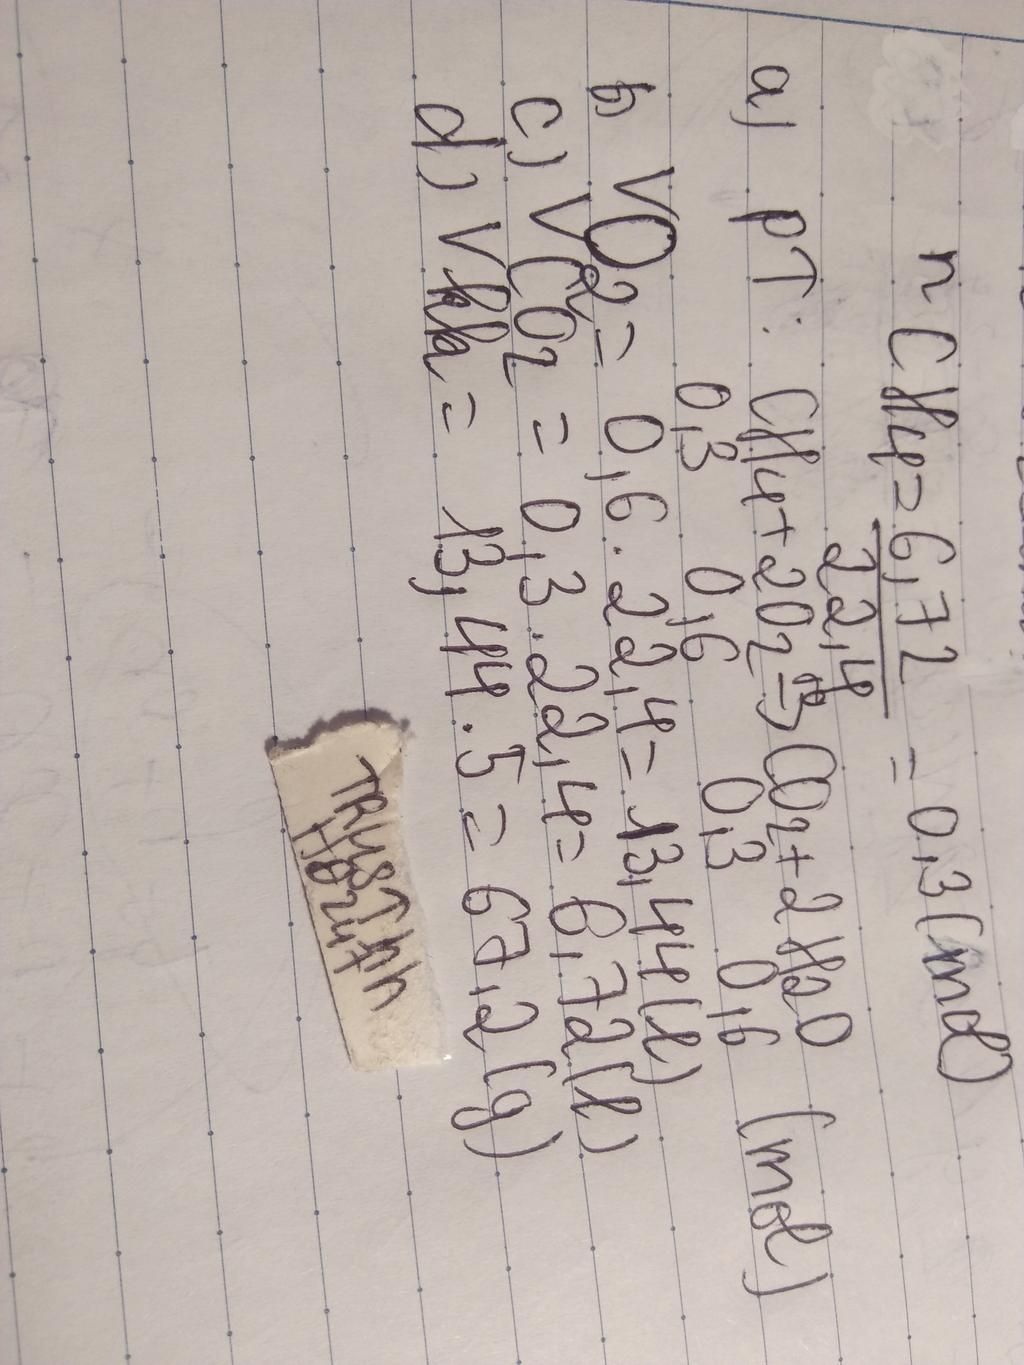 nCH4= 6,72 = 0,3(mol)
22,4
a) pT: CH4+2O2 to→ CO2+2H2O
0,3 0,6 0,3 0,6 (mol)
b) VO2= 0,6.22,4=13,44(l)
c) VCO2 = 0,3.22,4= 6,72(l)
d) Vkk= 13,44.5= 67,2(g)